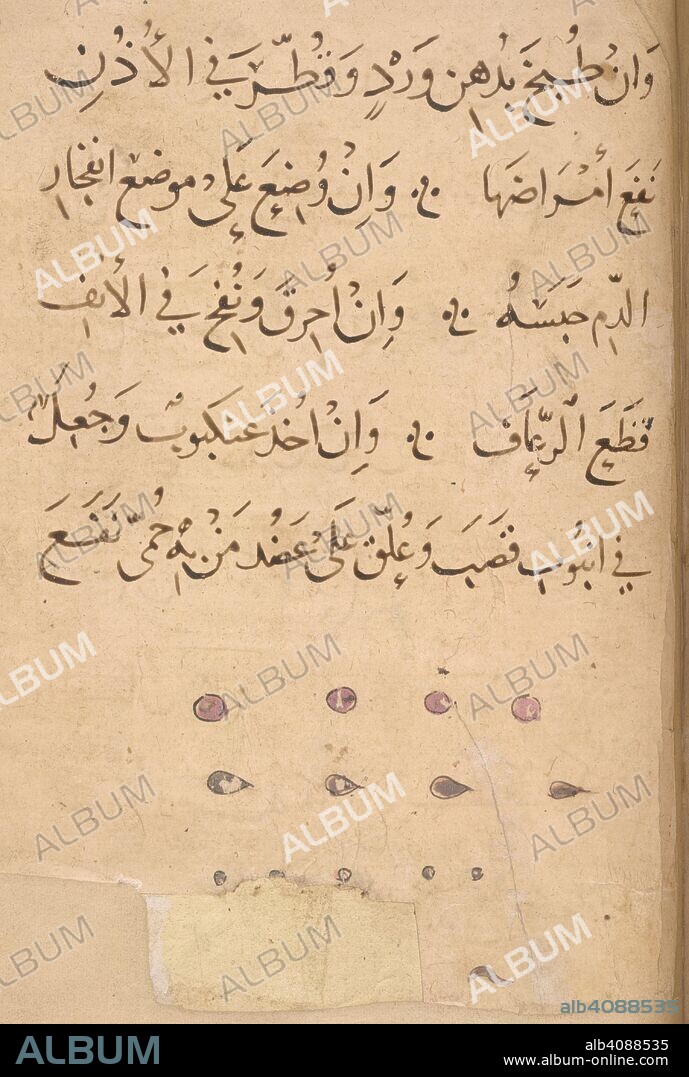 وَاِنْ طُبِخَ بِدُهِن وَرْدٍ وَقُطِّرَ فَي الأُذُنِ
نَفَعَ أمْرَاضَهَا وَاِنْ وُضِعَ عَلَى موضع انفجار
الدّمِ حَبَسَهُ وَاِنْ اُحرِقَ وَنُفخِ فَي الأنف
قَطَعَ الرِّعَاف وَاِنْ اُخذَ عنكبوت وَجُعِلَ
في انبُوب قصَبَ وَعُلِّق عَلَى عَضُد مَنْ بِهِ حُمّى نَفَعَ
ALBUM
alb4088535
ALBUM
alb4088535
www.album-online.com